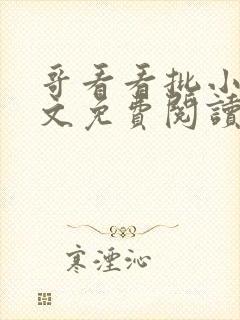 哥看看批小
文免費閱讀
寒湮沁